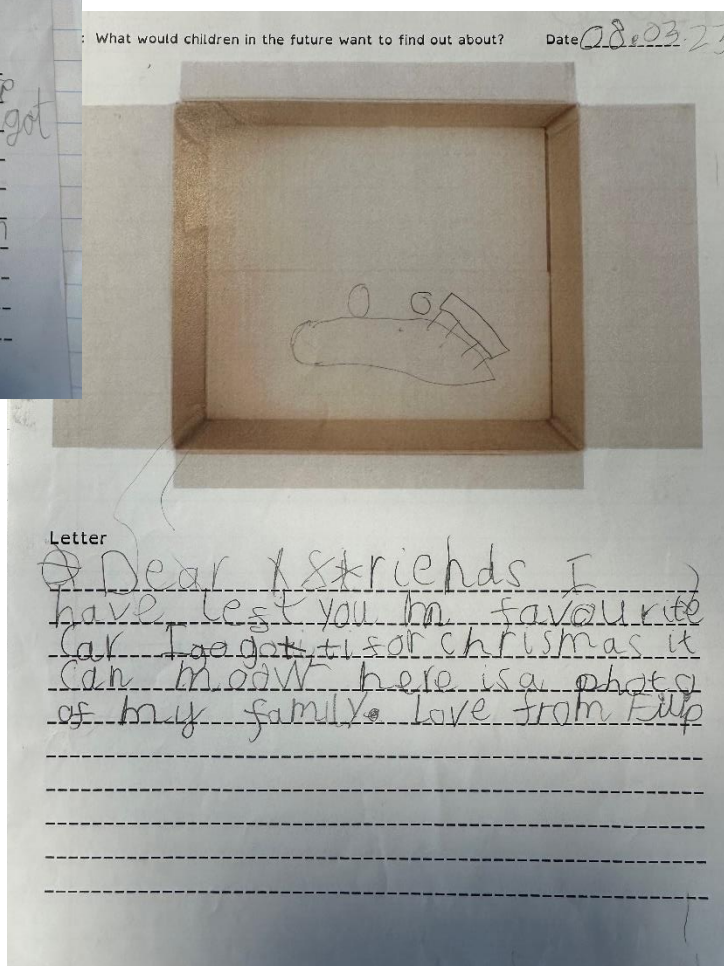 got
: What would children in the future want to find out about? Date 08.03.23
Letter
Dear friends I
have lest you m favourite
Car I go got ti for chrismas it
can moow here is a photo
of my family. Love from Filip